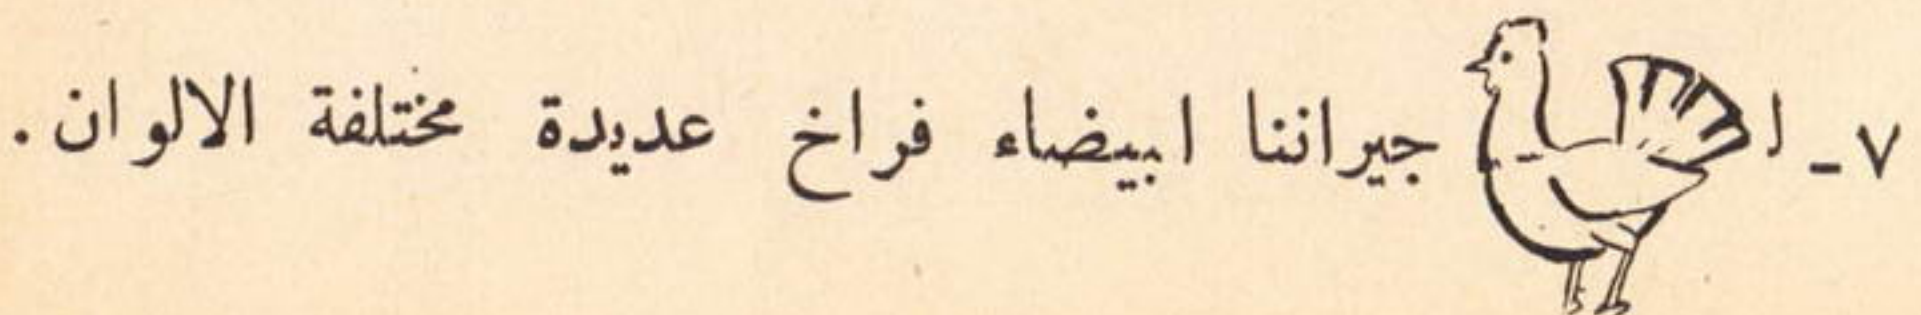 ٧ - ل جيراننا ابيضاء فراخ عديدة مختلفة الالوان .